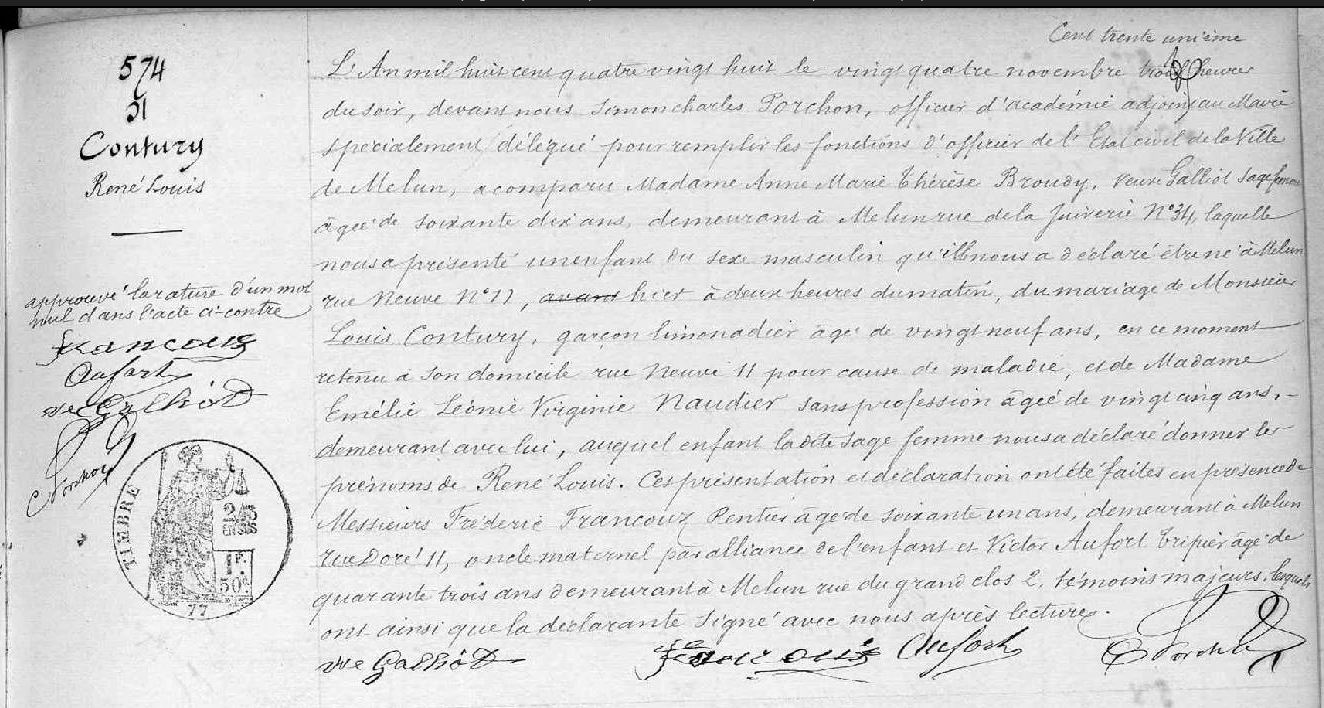 Cent trente unième
574
51
Contury
René Louis
L'An mil huit cent quatre vingt huit le vingt quatre novembre trois heures
du soir, devant nous Simon Charles Porchon, officier d'académie adjoint au Maire
spécialement délégué pour remplir les fonctions d'officier de l'Etat civil de la Ville
de Melun, a comparu Madame Anne Marie Thérèse Broudy, veuve Galliot sage femme
âgée de soixante dix ans, demeurant à Melun rue de la Juiverie N° 34, laquelle
nous a présenté un enfant du sexe masculin qu'elle nous a déclaré être né à Melun
rue Neuve N° 11, avant hier à deux heures du matin, du mariage de Monsieur
Louis Contury, garçon limonadier âgé de vingt neuf ans, en ce moment
retenu à son domicile rue Neuve 11 pour cause de maladie, et de Madame
Emélie Léonie Virginie Naudier sans profession âgée de vingt cinq ans,
demeurant avec lui, auquel enfant ladite sage femme nous a déclaré donner les
prénoms de René Louis. Ces présentation et déclaration ont été faites en présence de
Messieurs Fréderic Francouz Rentier âgé de soixante un ans, demeurant à Melun
rue Doré 11, oncle maternel par alliance de l'enfant et Victor Aufort Tripier âgé de
quarante trois ans demeurant à Melun rue du grand clos 2. témoins majeurs, lesquels
ont ainsi que la déclarante signé avec nous après lecture.
approuvé la rature d'un mot
nul dans l'acte ci-contre
Aufort
ve Galliot
Porchon
TIMBRE
2/10
EN SUS
1F.
50c
77
ve Galliot Aufort Porchon